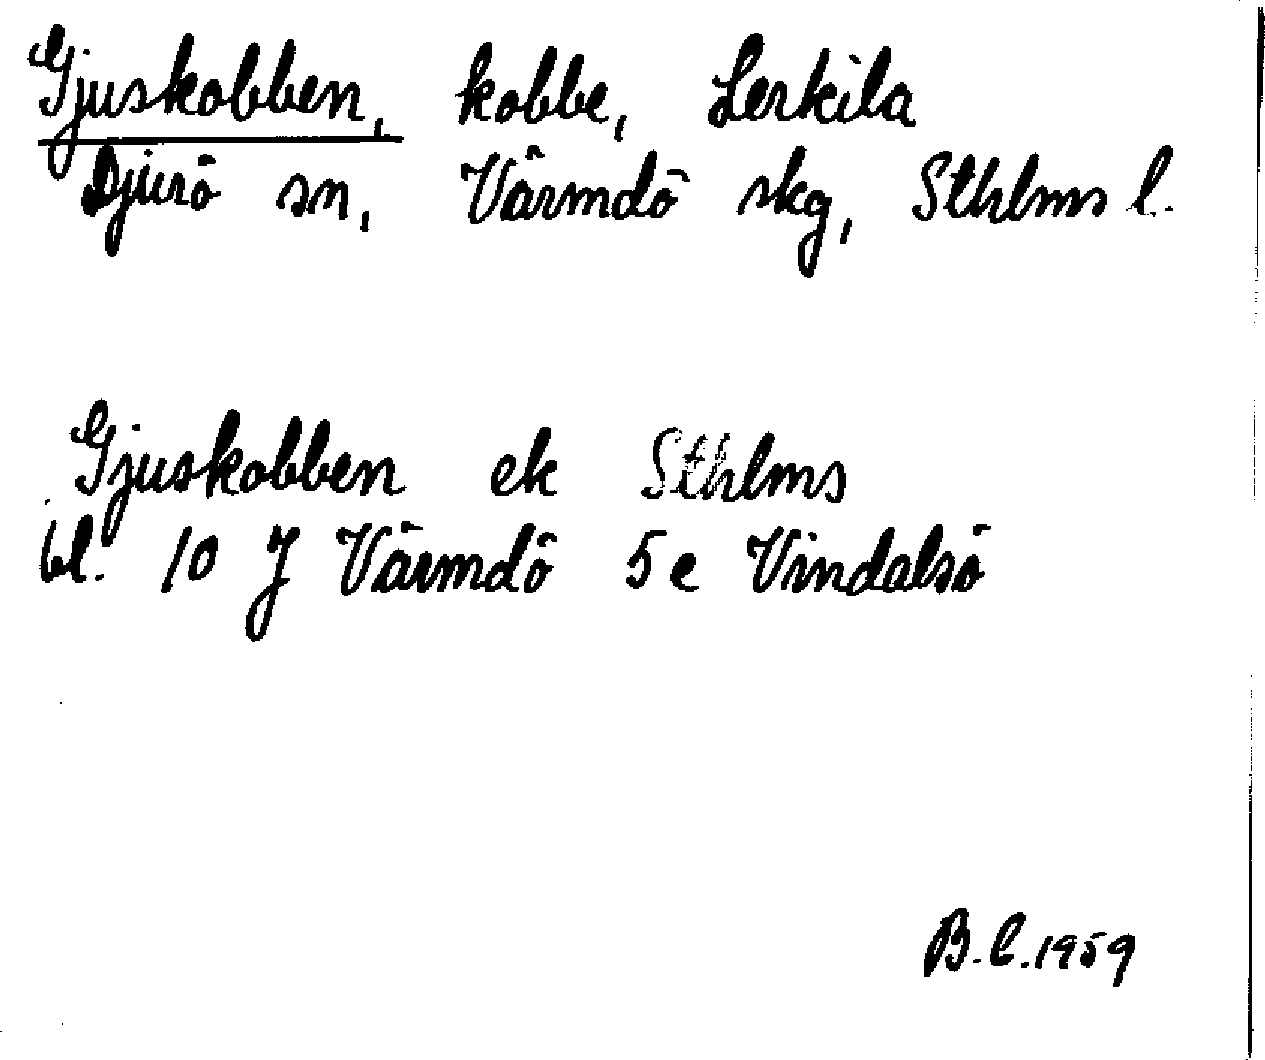 Gjuskobben, kobbe, Lerkila
Djurö sn, Värmdö skg, Sthlms l.
Gjuskobben ek Sthlms
bl. 10 J Värmdö 5e Vindalsö
B.C.1959